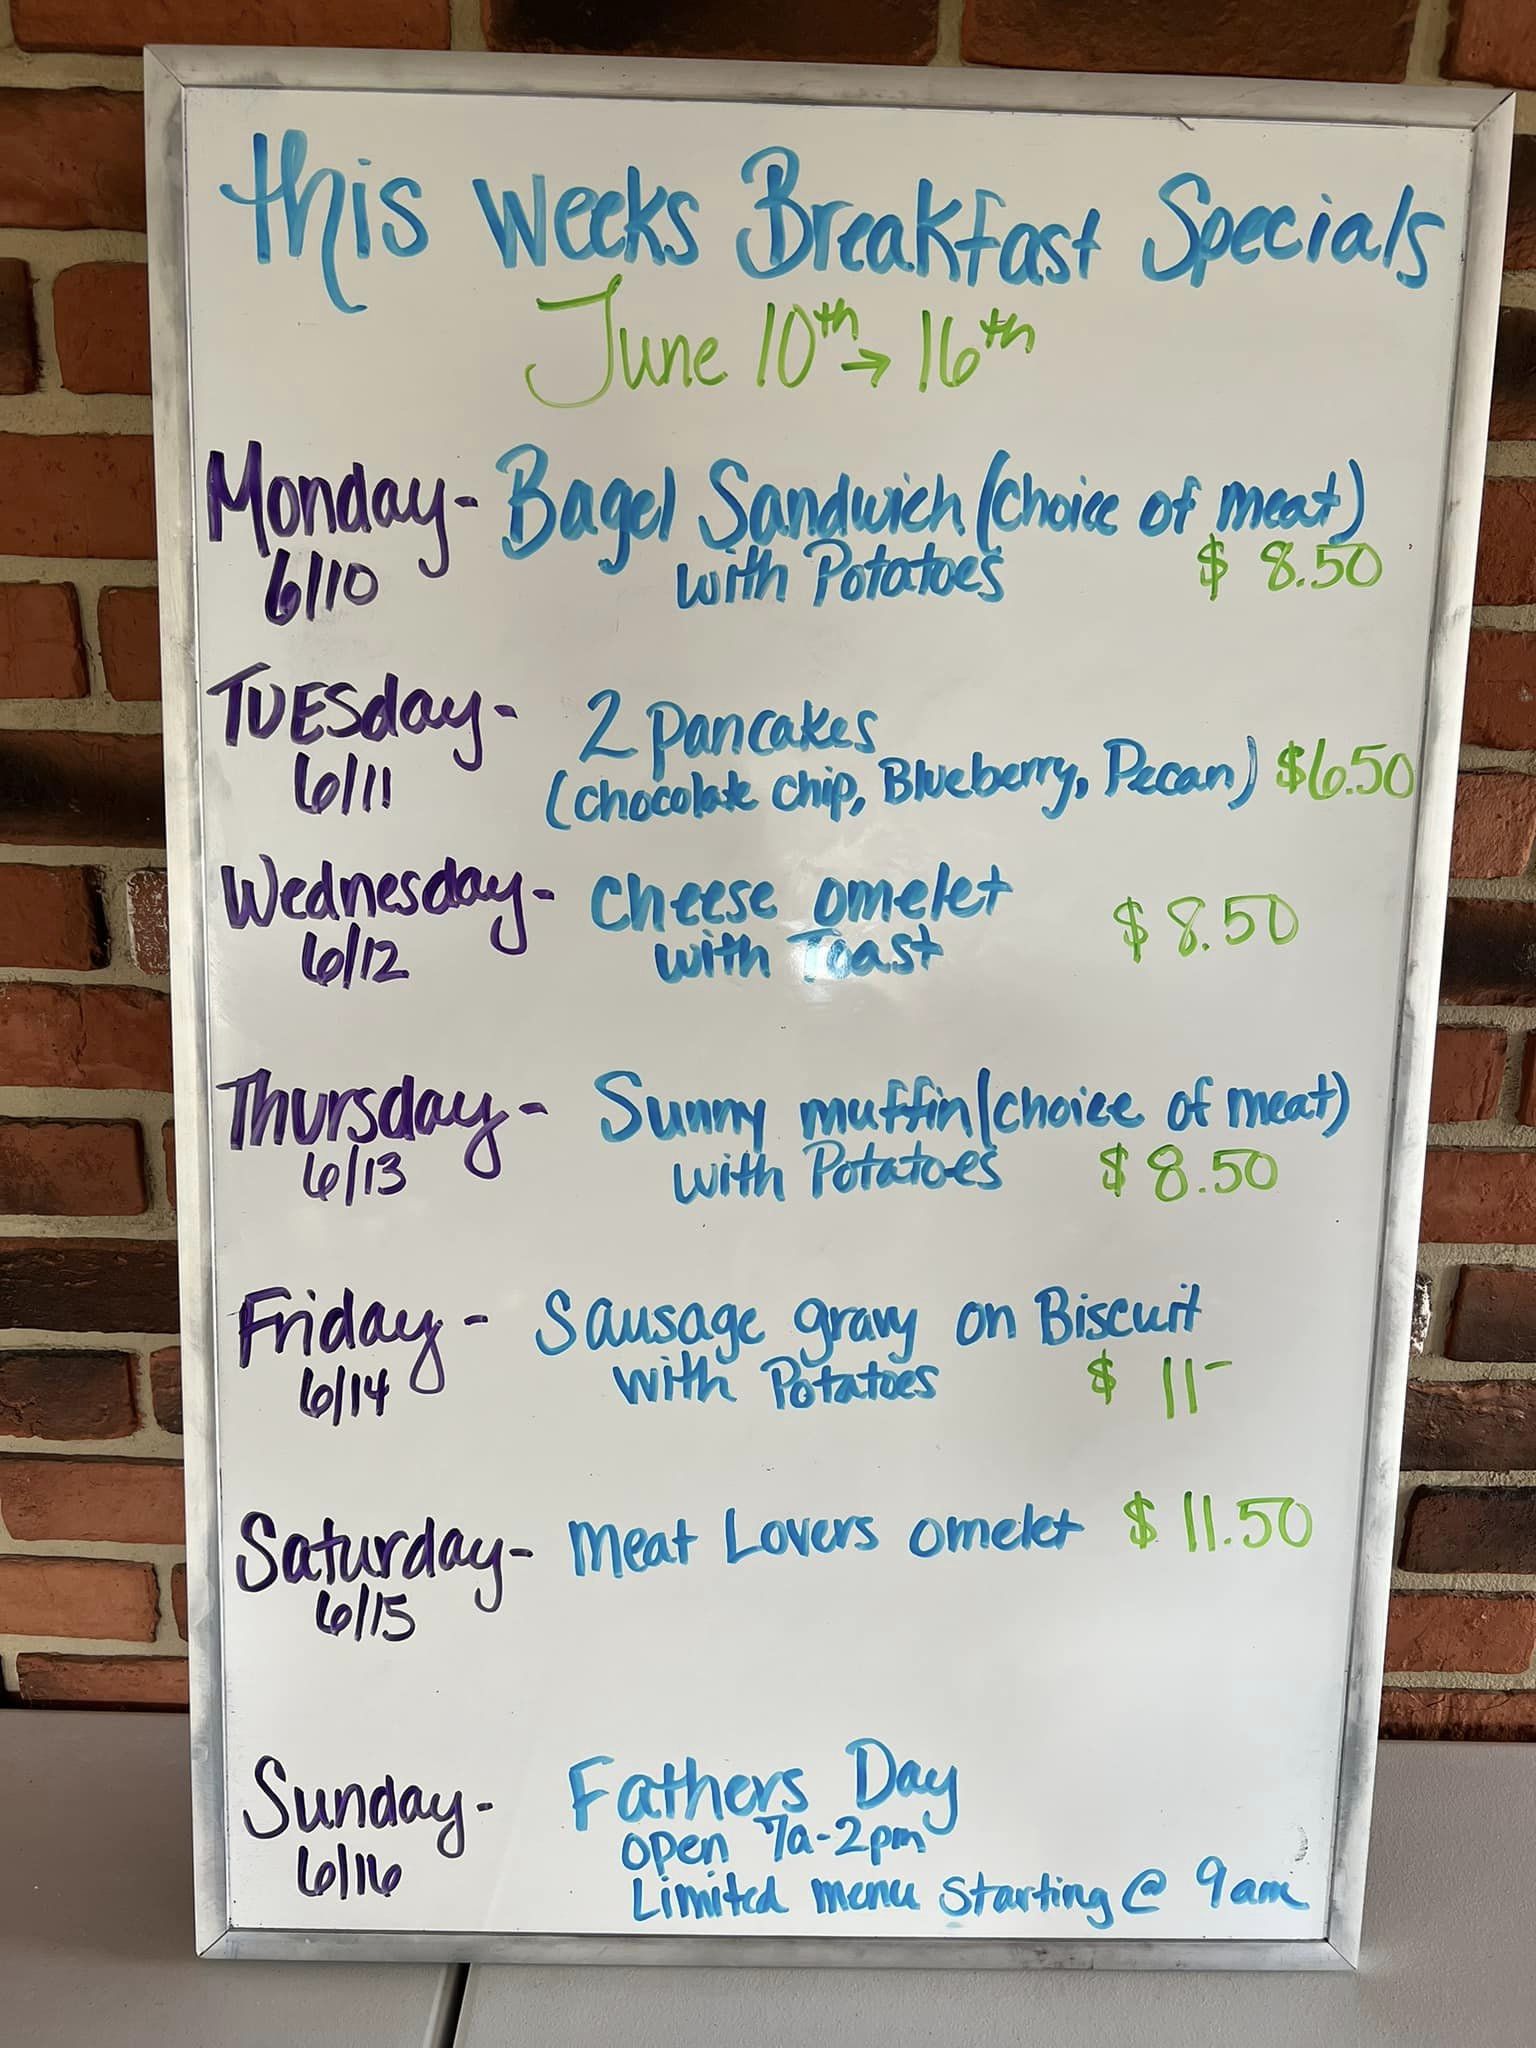 This Weeks Breakfast Specials
June 10th → 16th
Monday - Bagel Sandwich (choice of meat)
6/10 with Potatoes $ 8.50
TUESday - 2 pancakes
6/11 (chocolate chip, Blueberry, Pecan) $6.50
Wednesday - cheese omelet $ 8.50
6/12 with Toast
Thursday - Sunny muffin (choice of meat)
6/13 with Potatoes $ 8.50
Friday - Sausage gravy on Biscuit
6/14 with Potatoes $ 11-
Saturday - meat Lovers omelet $ 11.50
6/15
Sunday - Fathers Day
6/16 open 7a-2pm
Limited menu starting @ 9am